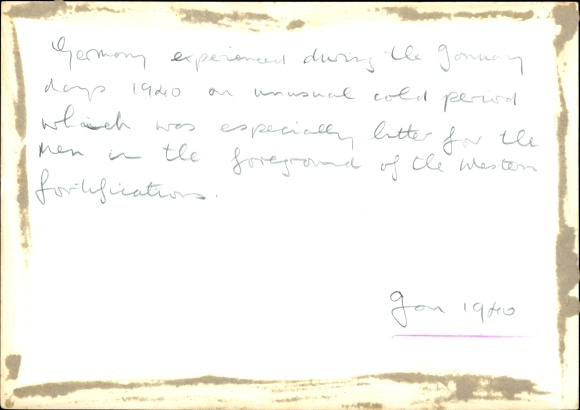 Germany experienced during the January
days 1940 an unusual cold period
which was especially bitter for the
men in the foreground of the western
fortifications.
Jan 1940